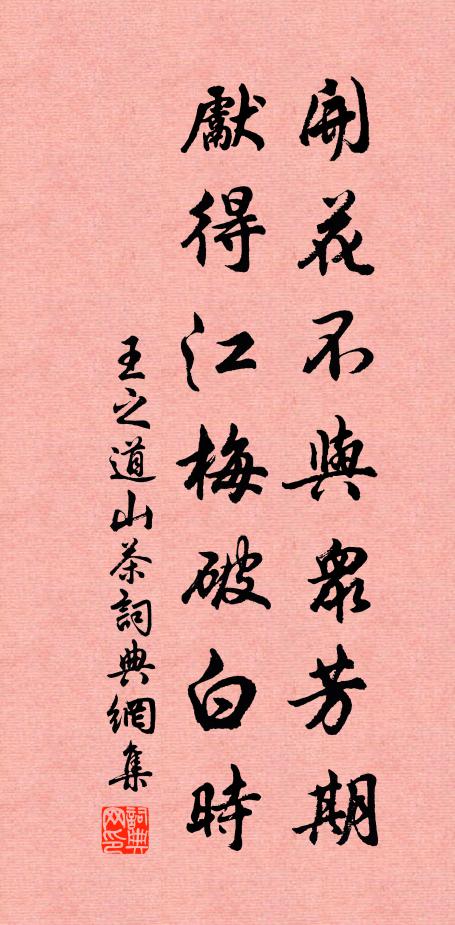 開花不與衆芳期
獻得江梅破白時
王之道山茶詞典網集
詞典網印